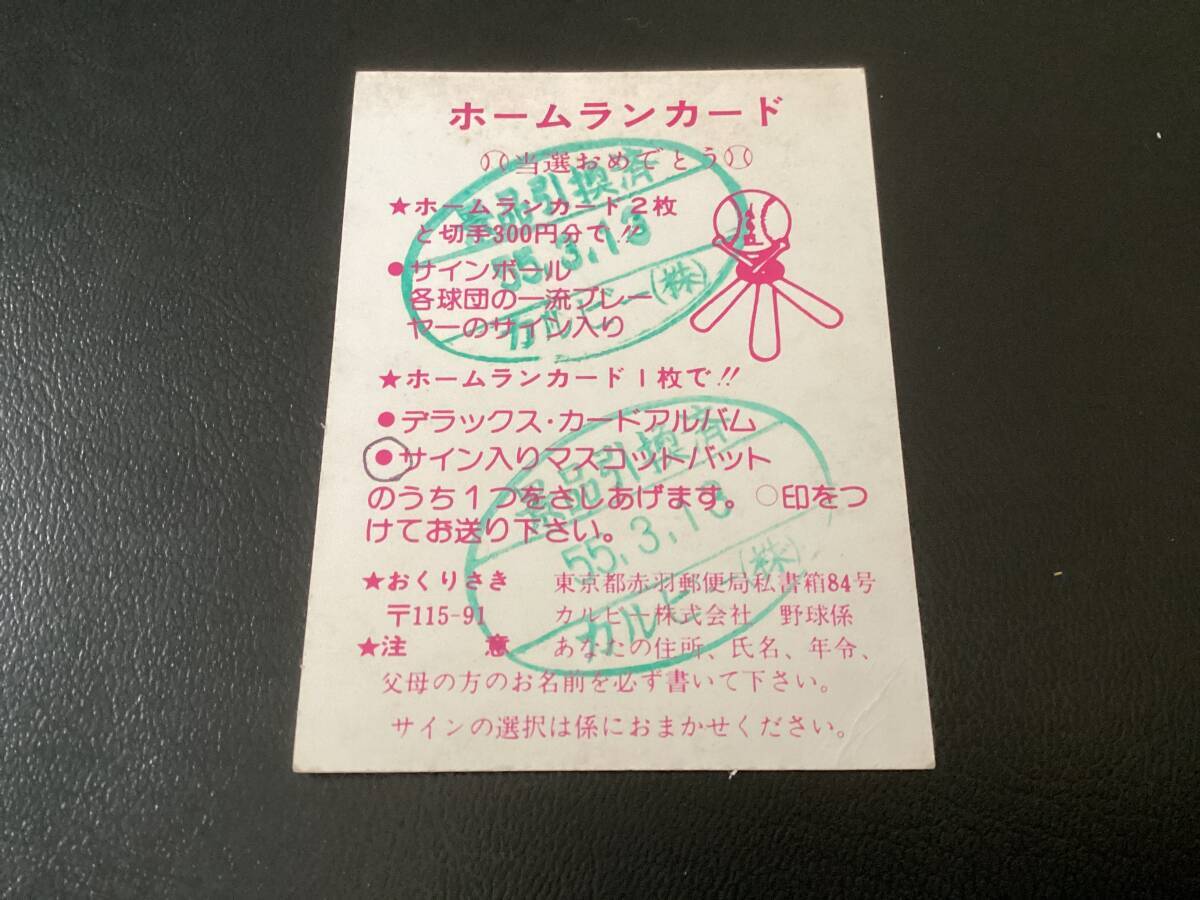 ホームランカード
当選おめでとう
★ホームランカード2枚
と切手300円分で!!
●サインボール
各球団の一流プレー
ヤーのサイン入り
景品引換済
55.3.13
カルビー(株)
★ホームランカード1枚で!!
●デラックス・カードアルバム
●サイン入りマスコットバット
のうち1つをさしあげます。○印をつ
けてお送り下さい。
景品引換済
55.3.13
カルビー(株)
★おくりさき 東京都赤羽郵便局私書箱84号
〒115-91 カルビー株式会社 野球係
★注意 あなたの住所、氏名、年令、
父母の方のお名前を必ず書いて下さい。
サインの選択は係におまかせください。